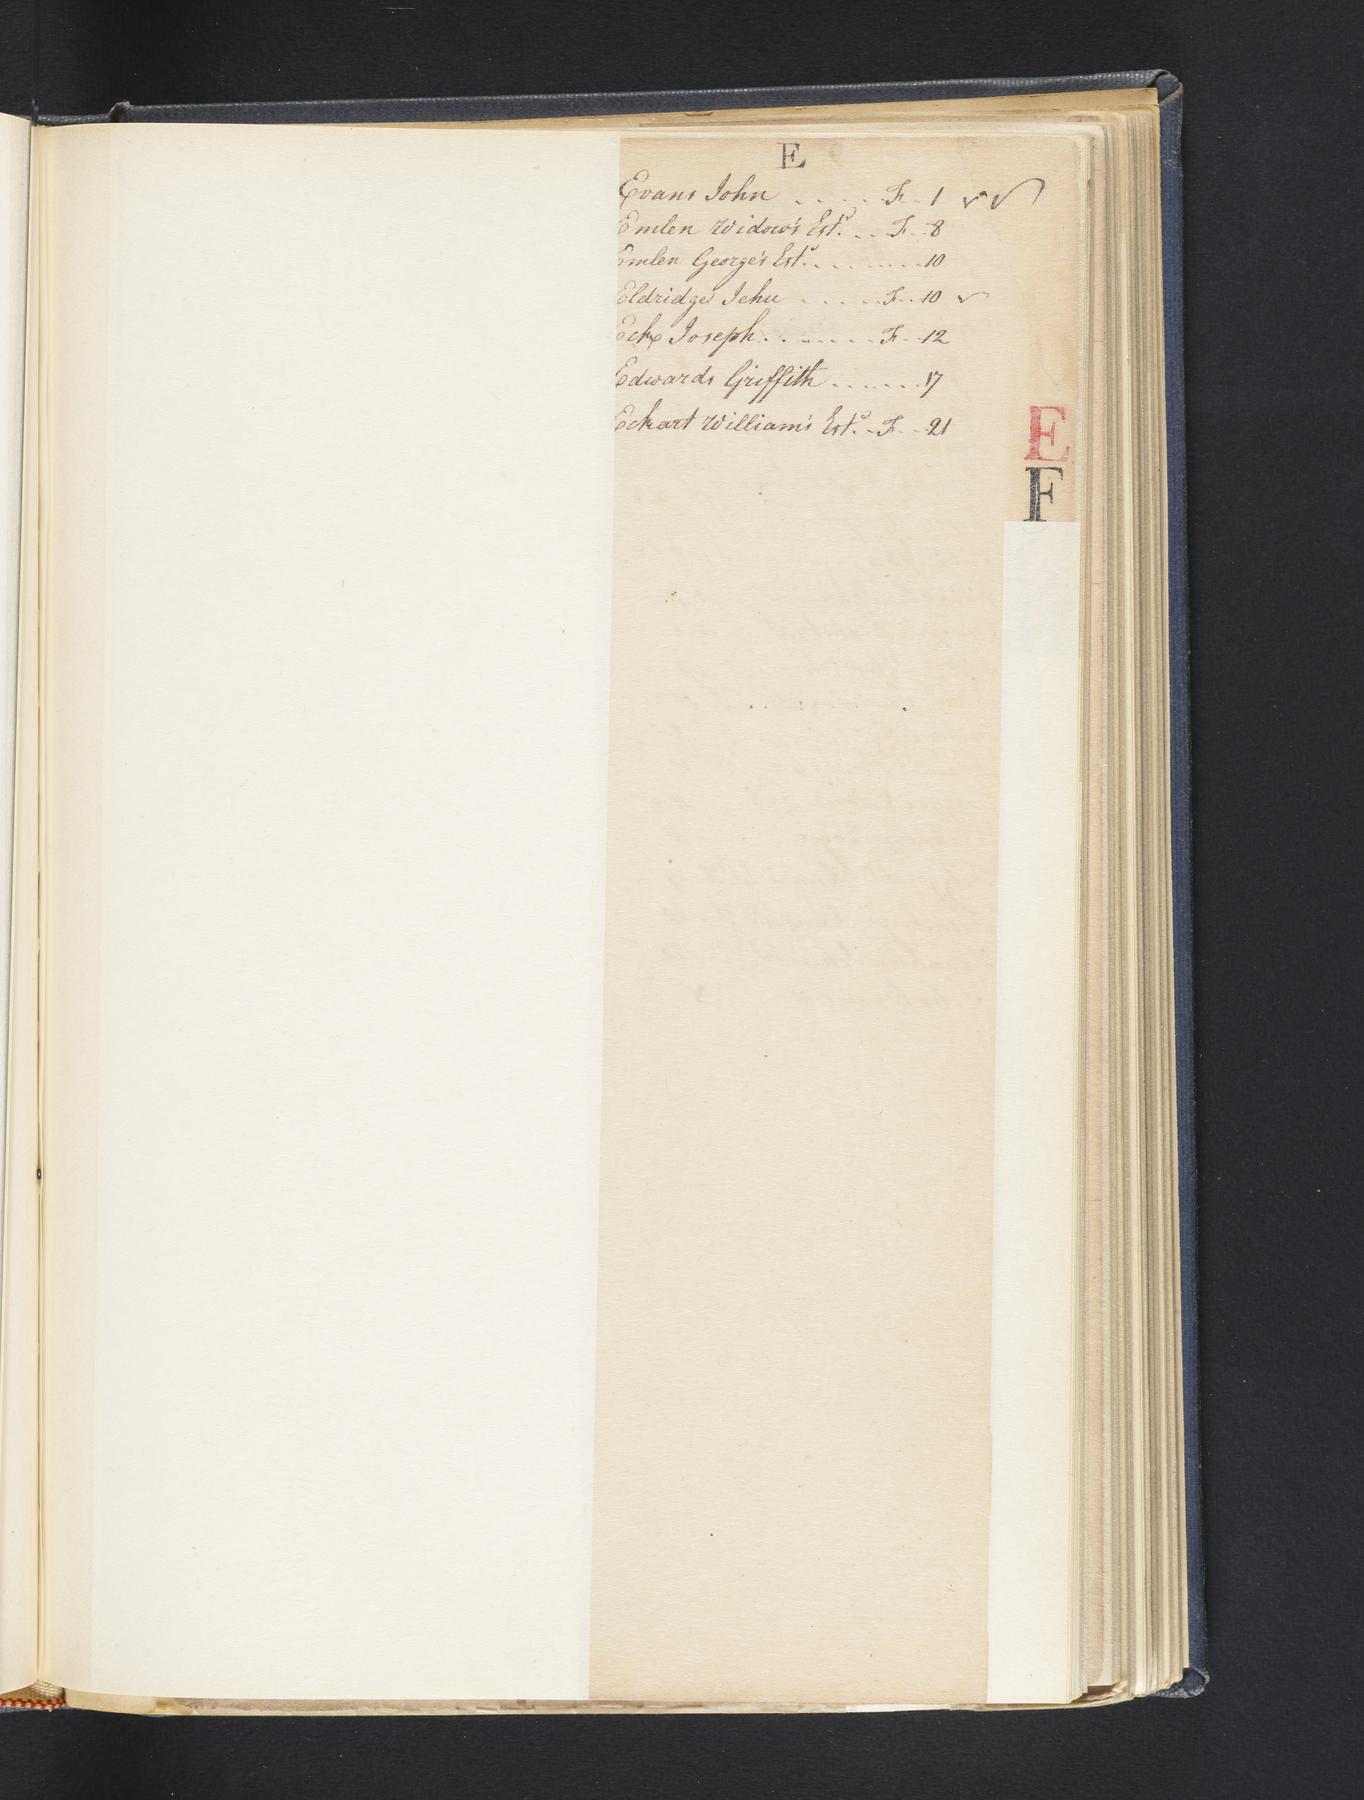 E
Evans John . . . . . F. 1 ✓ ✓
Emlen Widow's Est.ᵉ . . F. 8
Emlen George's Est.ᵉ . . . . . . . 10
Eldridge Jehu . . . . . F. . 10 ✓
Eck Joseph . . . . . . . F. 12
Edwards Griffith . . . . . . . 17
Eckart William's Est.ᵉ . F. . 21
E
F